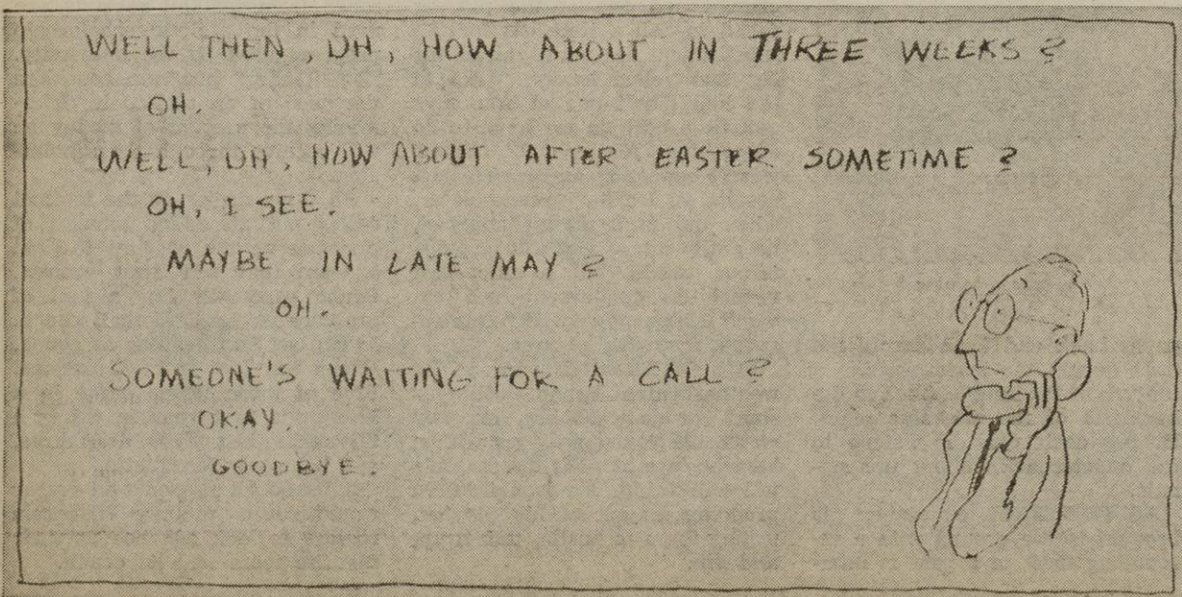 WELL THEN, UH, HOW ABOUT IN THREE WEEKS?
OH.
WELL, UH, HOW ABOUT AFTER EASTER SOMETIME?
OH, I SEE.
MAYBE IN LATE MAY?
OH.
SOMEONE'S WAITING FOR A CALL?
OKAY.
GOODBYE.